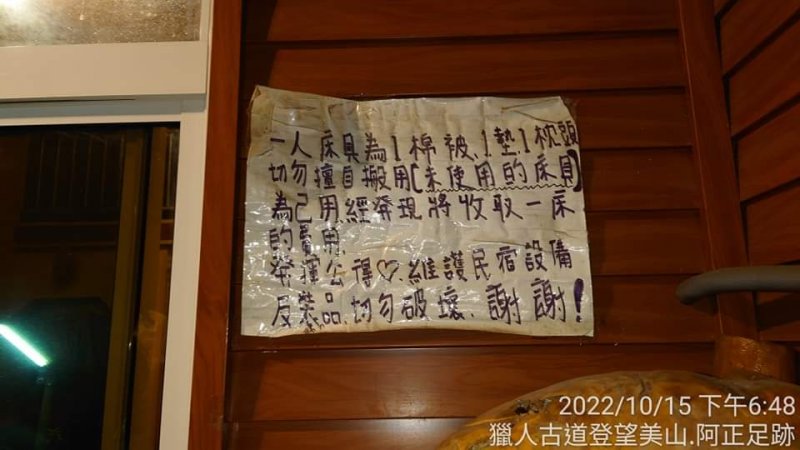 一人床具為1棉被.1墊.1枕頭
切勿擅自搬用[未使用的床具]
為己用.經發現將收取一床
的費用.
發揮公得♡.維護民宿設備
及裝品.切勿破壞.謝謝!
2022/10/15 下午6:48
獵人古道登望美山.阿正足跡